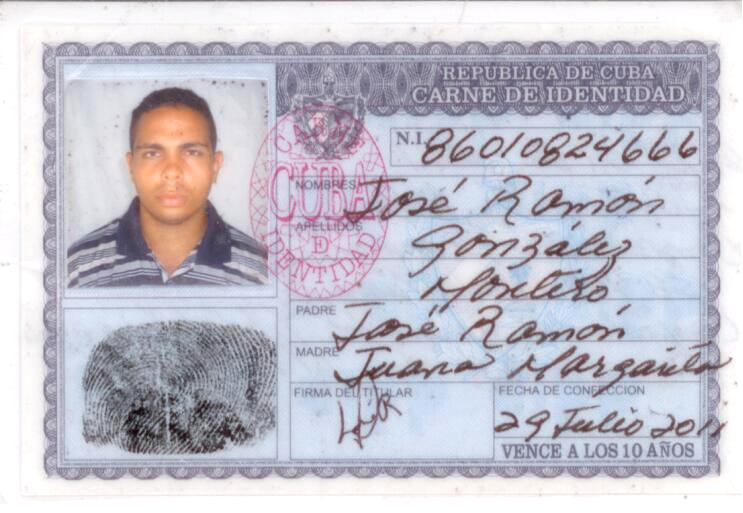 REPUBLICA DE CUBA
CARNE DE IDENTIDAD
N.I. 86010824666
CARNE
CUBA
DE
IDENTIDAD
NOMBRES José Ramón
APELLIDOS González
Montero
PADRE José Ramón
MADRE Juana Margarita
FIRMA DEL TITULAR
FECHA DE CONFECCION
29 Julio 2011
VENCE A LOS 10 AÑOS